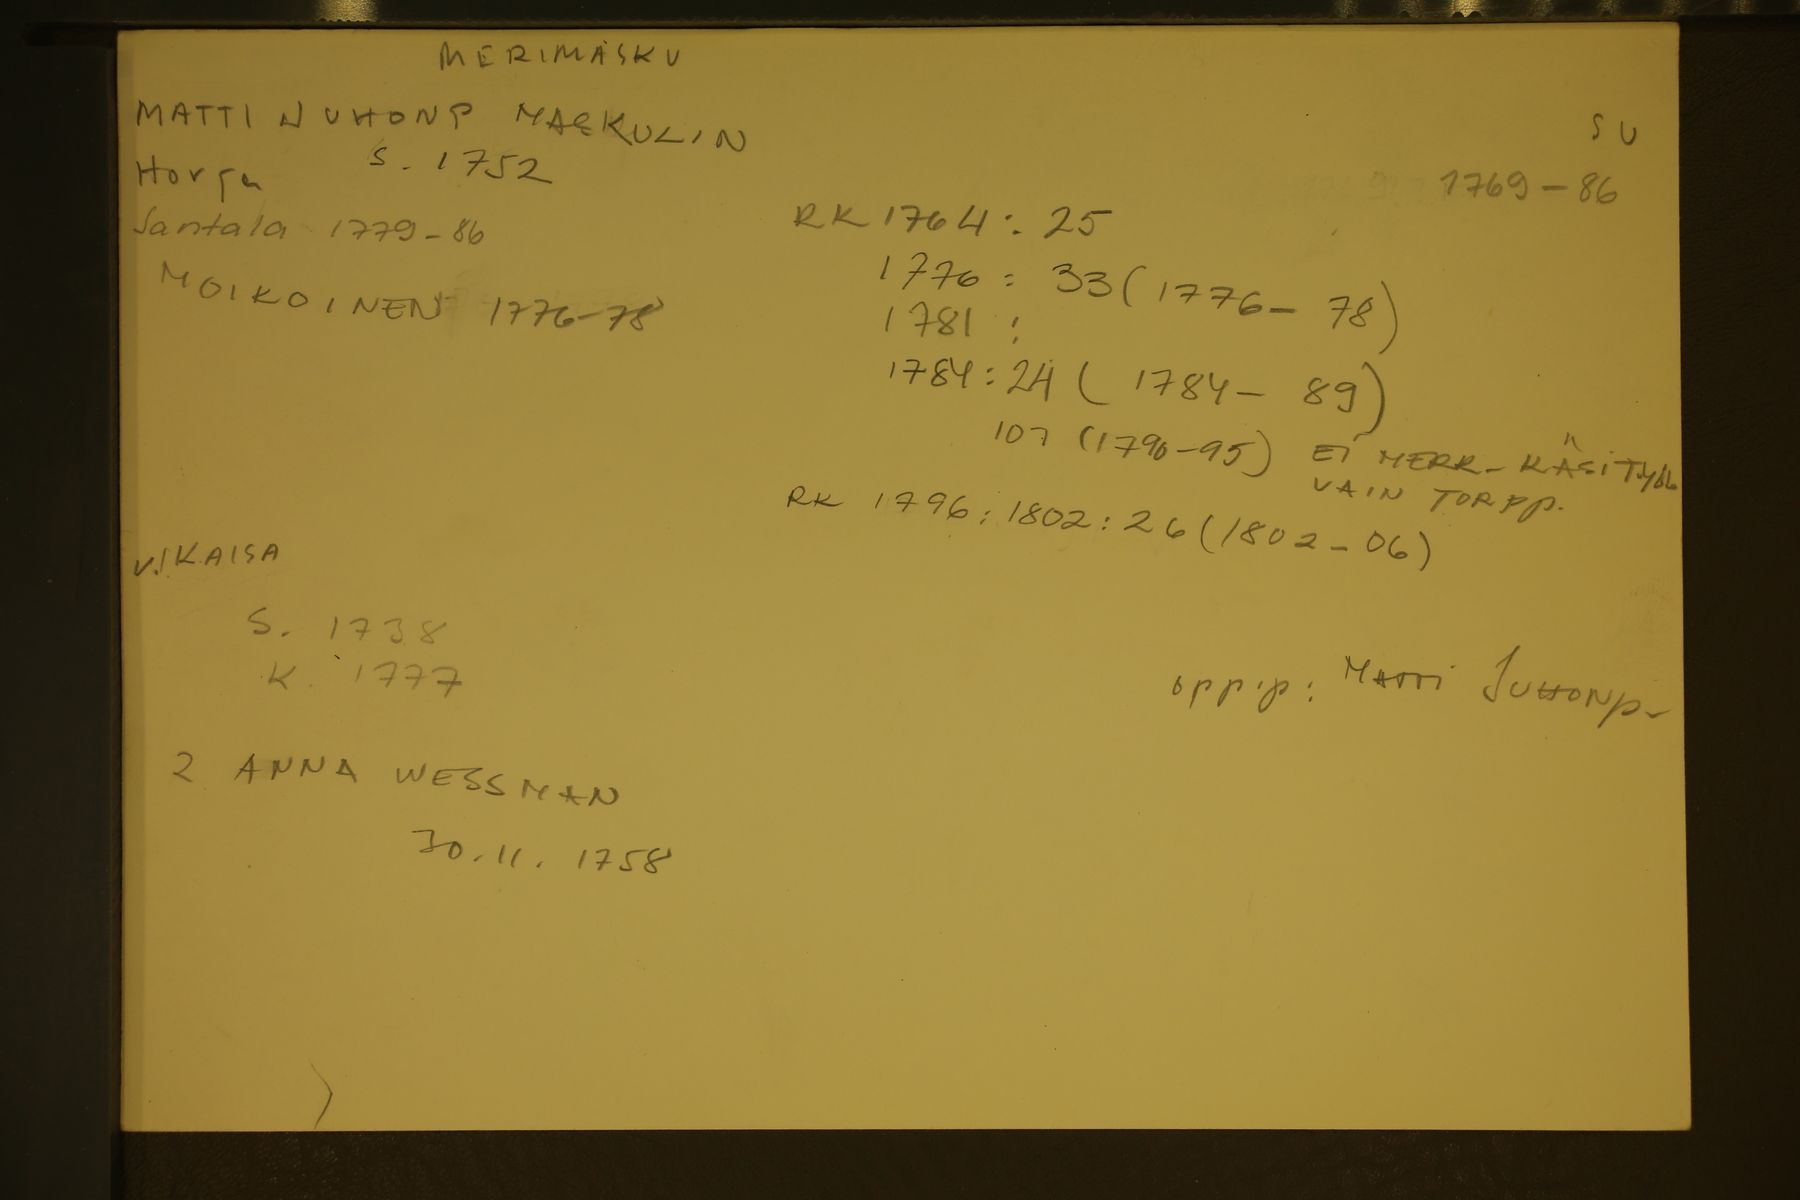 MERIMASKU
MATTI JUHONP MASKULIN
S. 1752
SU
1769-86
Santala 1779-86
MOIKOINEN 1776-78
RK 1764: 25
1776: 33 (1776-78)
1781:
1784: 24 (1784-89)
107 (1790-95) EI MERK-KÄSITYÖL
VAIN TORPP.
RK 1796: 1802: 26 (1802-06)
v.1 KAISA
S. 1738
K. 1777
oppip: MATTI JUHONP-
2 ANNA WESSMAN
30.11. 1758